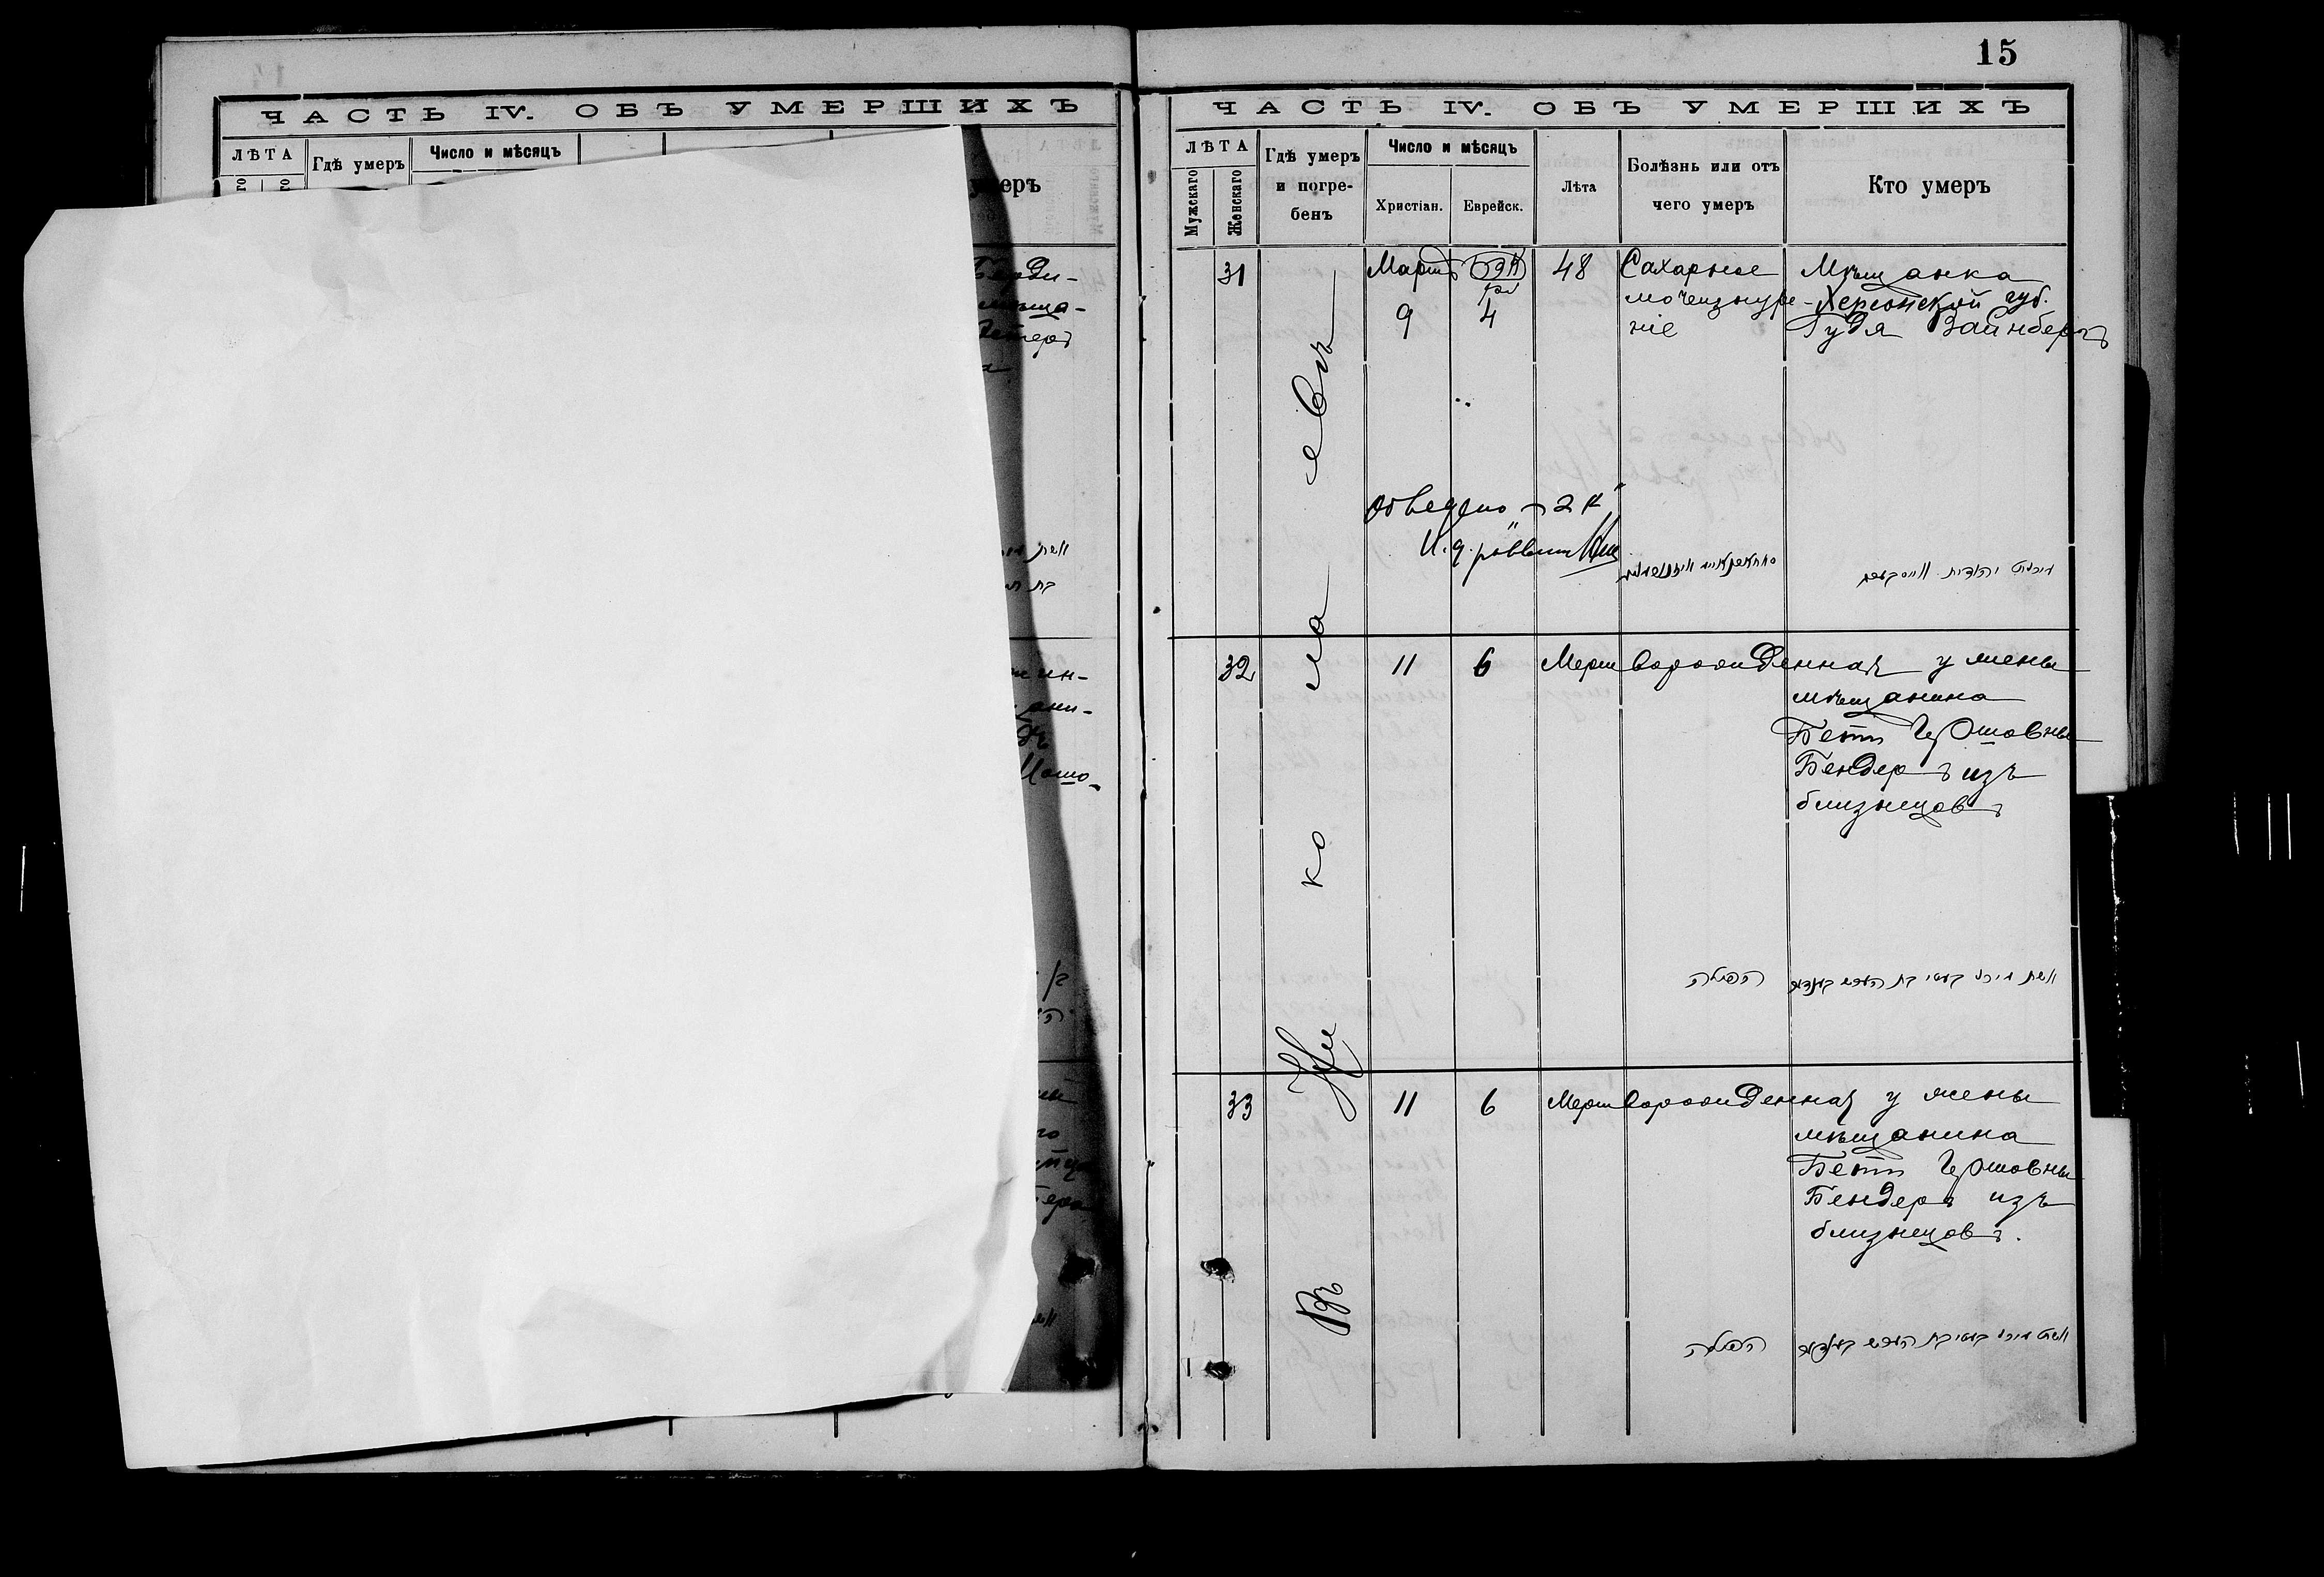 15
ЧАСТЬ IV. ОБЪ УМЕРШИХЪ
ЛѢТА
Гдѣ умеръ
Число и мѣсяцъ
умеръ
ЧАСТЬ IV. ОБЪ УМЕРШИХЪ
ЛѢТА
Мужскаго
Женскаго
Гдѣ умеръ
и погре-
бенъ
Число и мѣсяцъ
Христіан.
Еврейск.
Лѣта
Болѣзнь или отъ
чего умеръ
Кто умеръ
Въ Николаевѣ
31
Мартъ
9
4
48
Сахарное
мочеизнуре-
ніе
Мѣщанка
Херсонской губ.
Гудя Вайнбергъ
Обведено
И. д. раввина
32
11
6
Мертворожденная у жены
мѣщанина
Бети Гершовны
Бендеръ изъ
близнецовъ
הפילה
33
11
6
Мертворожденная у жены
мѣщанина
Бети Гершовны
Бендеръ изъ
близнецовъ.
הפילה